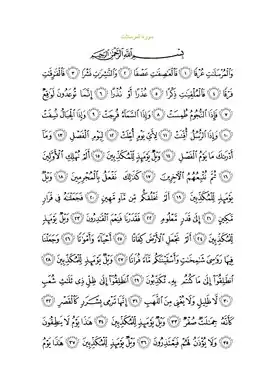 سورة المرسلات
بِسْمِ اللَّهِ الرَّحْمَٰنِ الرَّحِيمِ
وَالْمُرْسَلَٰتِ عُرْفًا ١ فَالْعَٰصِفَٰتِ عَصْفًا ٢ وَالنَّٰشِرَٰتِ نَشْرًا ٣ فَالْفَٰرِقَٰتِ
فَرْقًا ٤ فَالْمُلْقِيَٰتِ ذِكْرًا ٥ عُذْرًا أَوْ نُذْرًا ٦ إِنَّمَا تُوعَدُونَ لَوَٰقِعٌ
٧ فَإِذَا النُّجُومُ طُمِسَتْ ٨ وَإِذَا السَّمَاءُ فُرِجَتْ ٩ وَإِذَا الْجِبَالُ نُسِفَتْ
١٠ وَإِذَا الرُّسُلُ أُقِّتَتْ ١١ لِأَيِّ يَوْمٍ أُجِّلَتْ ١٢ لِيَوْمِ الْفَصْلِ ١٣ وَمَا
أَدْرَىٰكَ مَا يَوْمُ الْفَصْلِ ١٤ وَيْلٌ يَوْمَئِذٍ لِّلْمُكَذِّبِينَ ١٥ أَلَمْ نُهْلِكِ الْأَوَّلِينَ
١٦ ثُمَّ نُتْبِعُهُمُ الْآخِرِينَ ١٧ كَذَٰلِكَ نَفْعَلُ بِالْمُجْرِمِينَ ١٨ وَيْلٌ
يَوْمَئِذٍ لِّلْمُكَذِّبِينَ ١٩ أَلَمْ نَخْلُقكُّم مِّن مَّاءٍ مَّهِينٍ ٢٠ فَجَعَلْنَٰهُ فِي قَرَارٍ
مَّكِينٍ ٢١ إِلَىٰ قَدَرٍ مَّعْلُومٍ ٢٢ فَقَدَرْنَا فَنِعْمَ الْقَٰدِرُونَ ٢٣ وَيْلٌ يَوْمَئِذٍ
لِّلْمُكَذِّبِينَ ٢٤ أَلَمْ نَجْعَلِ الْأَرْضَ كِفَاتًا ٢٥ أَحْيَاءً وَأَمْوَٰتًا ٢٦ وَجَعَلْنَا
فِيهَا رَوَٰسِيَ شَٰمِخَٰتٍ وَأَسْقَيْنَٰكُم مَّاءً فُرَاتًا ٢٧ وَيْلٌ يَوْمَئِذٍ لِّلْمُكَذِّبِينَ ٢٨
انطَلِقُوا إِلَىٰ مَا كُنتُم بِهِ تُكَذِّبُونَ ٢٩ انطَلِقُوا إِلَىٰ ظِلٍّ ذِي ثَلَٰثِ شُعَبٍ
٣٠ لَّا ظَلِيلٍ وَلَا يُغْنِي مِنَ اللَّهَبِ ٣١ إِنَّهَا تَرْمِي بِشَرَرٍ كَالْقَصْرِ ٣٢
كَأَنَّهُ جِمَٰلَتٌ صُفْرٌ ٣٣ وَيْلٌ يَوْمَئِذٍ لِّلْمُكَذِّبِينَ ٣٤ هَٰذَا يَوْمُ لَا يَنطِقُونَ
٣٥ وَلَا يُؤْذَنُ لَهُمْ فَيَعْتَذِرُونَ ٣٦ وَيْلٌ يَوْمَئِذٍ لِّلْمُكَذِّبِينَ ٣٧ هَٰذَا يَوْمُ